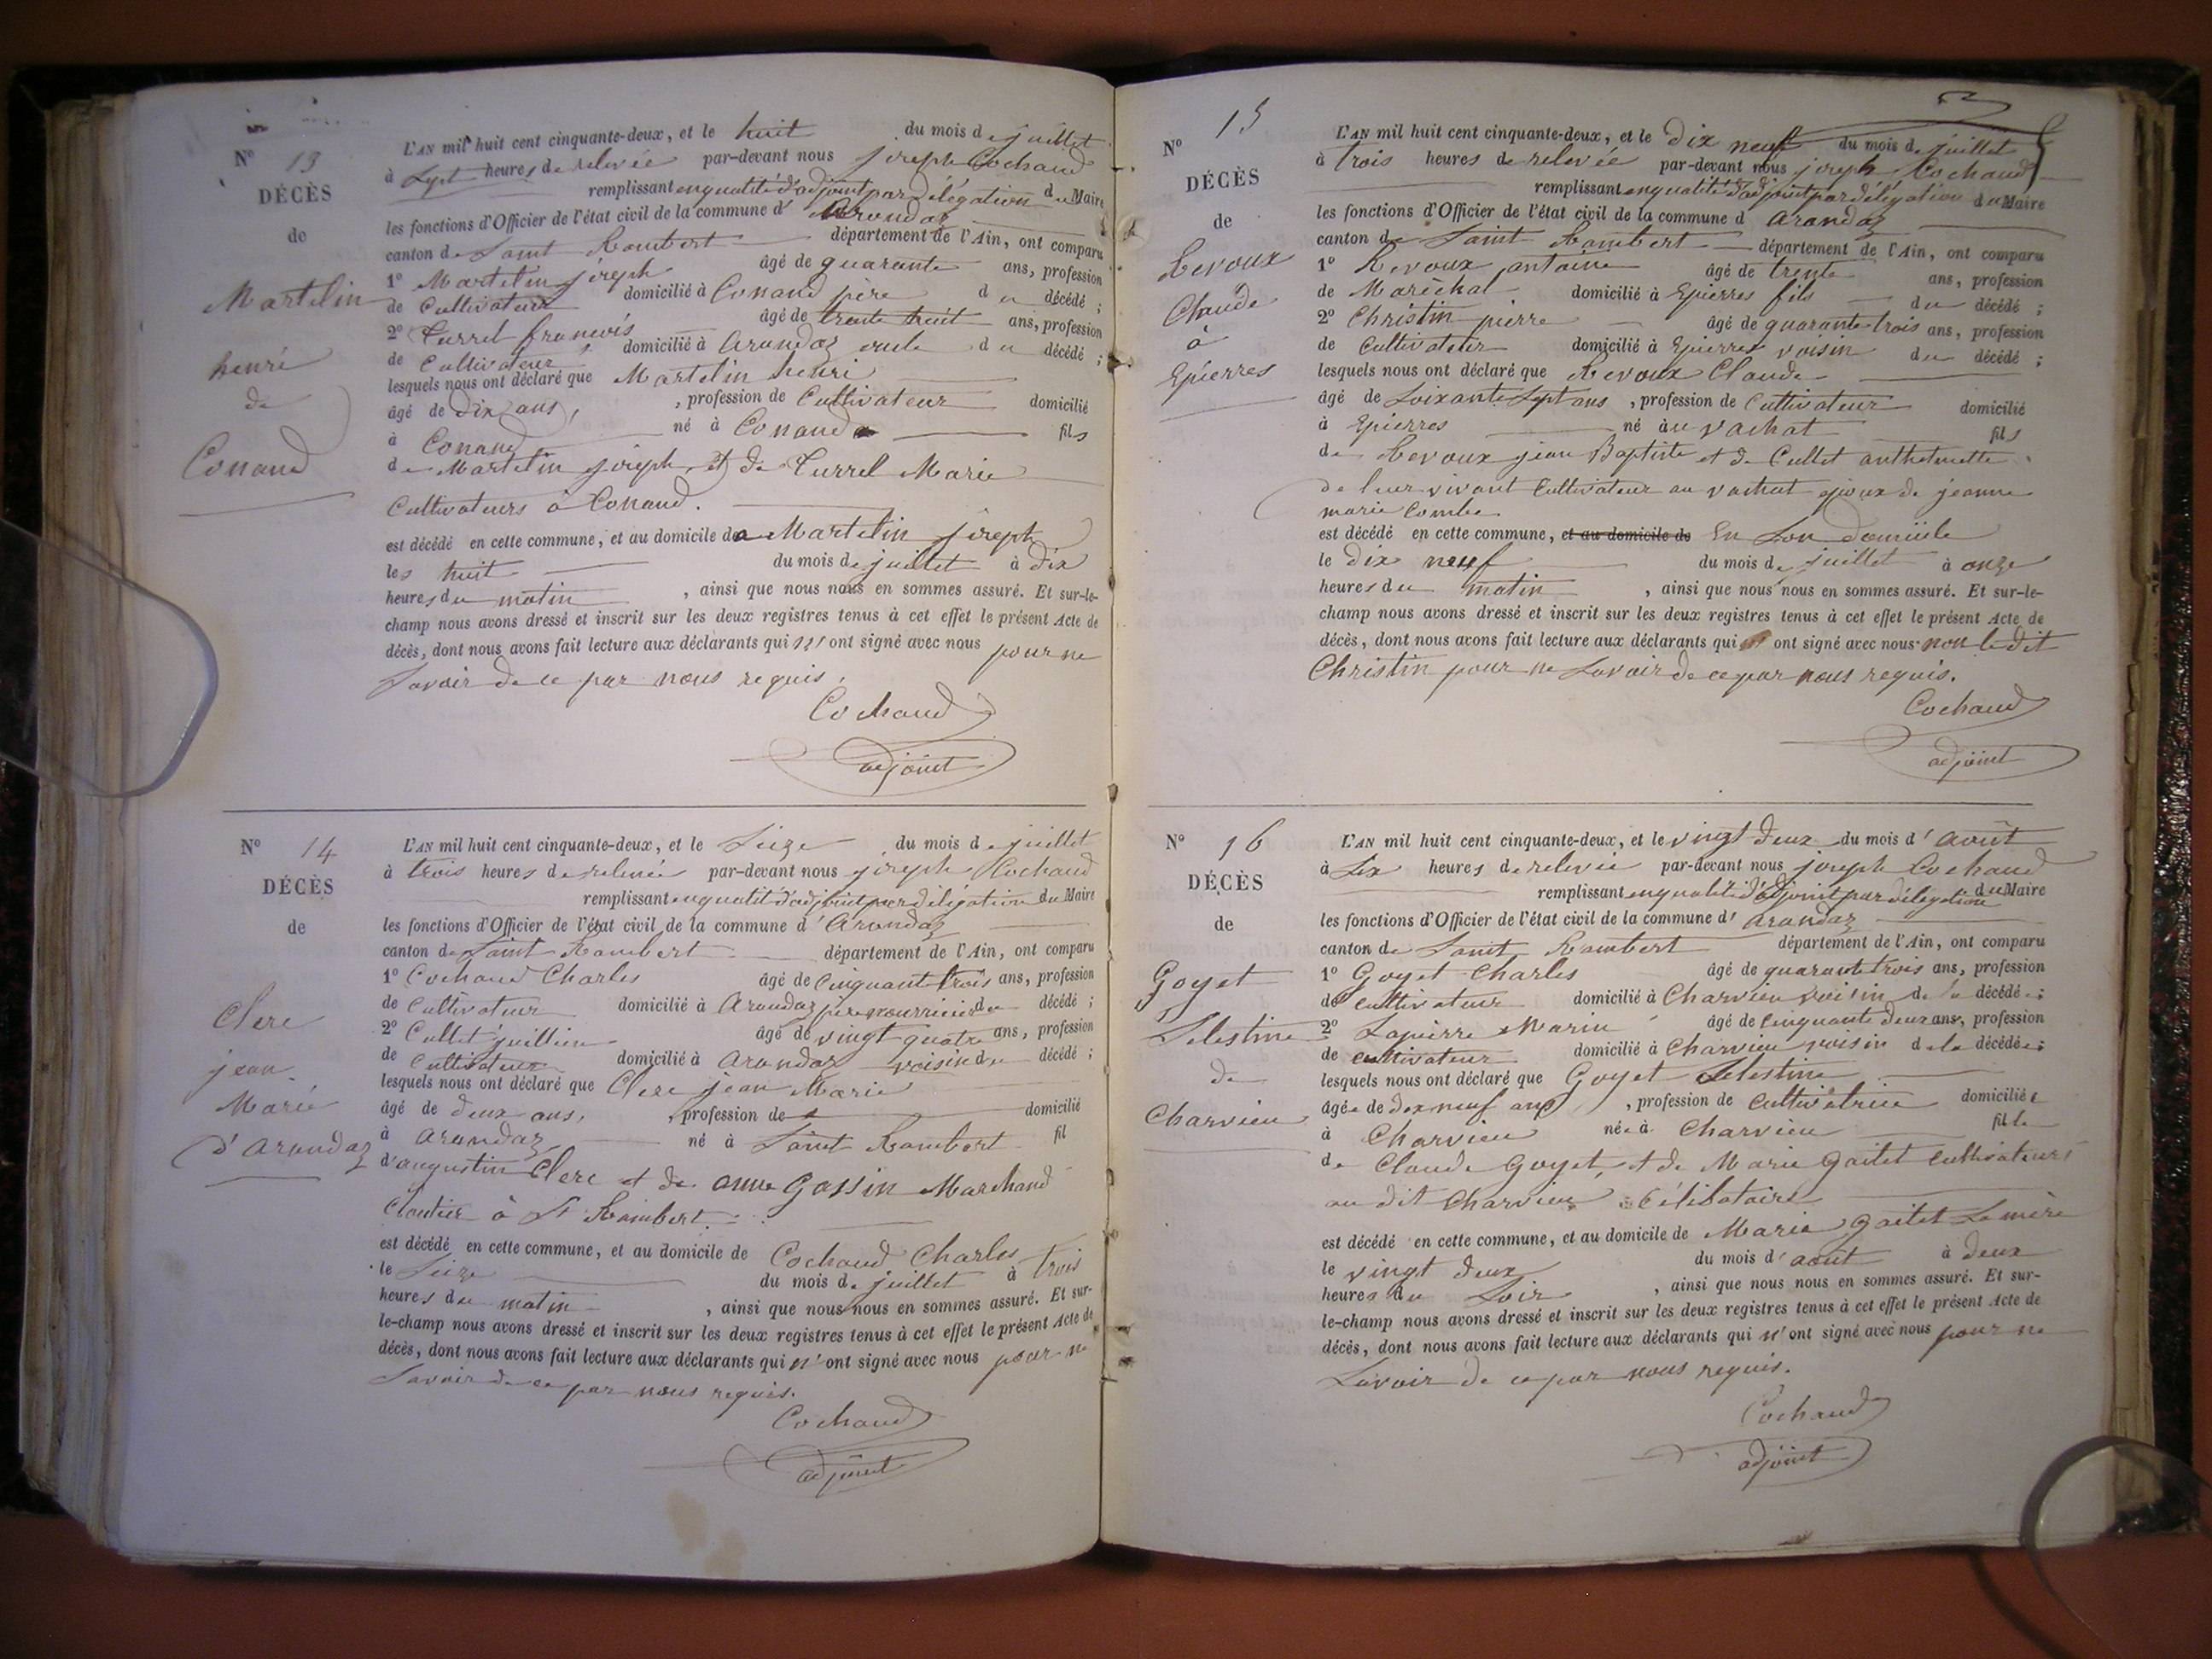 N° 13
DÉCÈS
de
Martelin
henri
de
Conand
L'AN mil huit cent cinquante-deux, et le huit du mois de juillet
à Sept heures de relevée par-devant nous joseph Cochaud
remplissant en qualité d'adjoint par délégation du Maire
les fonctions d'Officier de l'état civil de la commune d'Arandaz
canton de Saint Rambert département de l'Ain, ont comparu
1° Martelin joseph âgé de quarante ans, profession
de Cultivateur domicilié à Conand père du décédé ;
2° Turrel francois âgé de trente huit ans, profession
de Cultivateur domicilié à Arandaz oncle du décédé ;
lesquels nous ont déclaré que Martelin henri
âgé de dix ans, , profession de Cultivateur domicilié
à Conand né à Conand fils
de Martelin joseph et de Turrel Marie
Cultivateurs à Conand.
est décédé en cette commune, et au domicile de Martelin joseph
les huit du mois de juillet à dix
heures du matin , ainsi que nous nous en sommes assuré. Et sur-le-
champ nous avons dressé et inscrit sur les deux registres tenus à cet effet le présent Acte de
décès, dont nous avons fait lecture aux déclarants qui n'ont signé avec nous pour ne
Savoir de ce par nous requis.
Cochaud
adjoint
N° 14
DÉCÈS
de
Clere
jean
Marie
d'Arandaz
L'AN mil huit cent cinquante-deux, et le Seize du mois de juillet
à trois heures de relevée par-devant nous joseph Cochaud
remplissant en qualité d'adjoint par délégation du Maire
les fonctions d'Officier de l'état civil de la commune d'Arandaz
canton de Saint Rambert département de l'Ain, ont comparu
1° Cochaud Charles âgé de Cinquante trois ans, profession
de Cultivateur domicilié à Arandaz père nourricier du décédé ;
2° Cullet juillien âgé de vingt quatre ans, profession
de Cultivateur domicilié à Arandaz voisin du décédé ;
lesquels nous ont déclaré que Clere jean Marie
âgé de deux ans, , profession de domicilié
à Arandaz né à Saint Rambert fil
d'augustin Clere et de anne Gassin Marchand
Cloutier à St Rambert.
est décédé en cette commune, et au domicile de Cochaud Charles
le Seize du mois de juillet à trois
heures du matin , ainsi que nous nous en sommes assuré. Et sur-
le-champ nous avons dressé et inscrit sur les deux registres tenus à cet effet le présent Acte de
décès, dont nous avons fait lecture aux déclarants qui n'ont signé avec nous pour ne
Savoir de ce par nous requis.
Cochaud
adjoint
N° 15
DÉCÈS
de
Revoux
Claude
à
Epierres
L'AN mil huit cent cinquante-deux, et le Dix neuf du mois de juillet
à trois heures de relevée par-devant nous joseph Cochaud
remplissant en qualité d'adjoint par délégation du Maire
les fonctions d'Officier de l'état civil de la commune d arandaz
canton de Saint Rambert département de l'Ain, ont comparu
1° Revoux antoine âgé de trente ans, profession
de Maréchal domicilié à Epierres fils du décédé ;
2° Christin pierre âgé de quarante trois ans, profession
de Cultivateur domicilié à Epierres voisin du décédé ;
lesquels nous ont déclaré que Revoux Claude
âgé de Soixante Sept ans , profession de Cultivateur domicilié
à Epierres né au vachat fils
de Revoux jean Baptiste et de Cullet
de leur vivant Cultivateur au vachat époux de jeanne
marie Combe.
est décédé en cette commune, et au domicile de En Son domicile
le dix neuf du mois de juillet à onze
heures du matin , ainsi que nous nous en sommes assuré. Et sur-le-
champ nous avons dressé et inscrit sur les deux registres tenus à cet effet le présent Acte de
décès, dont nous avons fait lecture aux déclarants qui ont signé avec nous non le dit
Christin pour ne Savoir de ce par nous requis.
Cochaud
adjoint
N° 16
DÉCÈS
de
Goyet
Selestine
de
Charvieu
L'AN mil huit cent cinquante-deux, et le vingt deux du mois d'août
à Six heures de relevée par-devant nous joseph Cochaud
remplissant en qualité d'adjoint par délégation du Maire
les fonctions d'Officier de l'état civil de la commune d'arandaz
canton de Saint Rambert département de l'Ain, ont comparu
1° Goyet Charles âgé de quarante trois ans, profession
de cultivateur domicilié à Charvieu voisin de la décédée ;
2° Lapierre Marin âgé de Cinquante deux ans, profession
de cultivateur domicilié à Charvieu voisin de la décédée ;
lesquels nous ont déclaré que Goyet Selestine
âgée de dix neuf ans , profession de Cultivatrice domiciliée
à Charvieu née à Charvieu fille
de Claude Goyet et de Marie Gaitet Cultivateurs
au dit Charvieu Célibataire
est décédé en cette commune, et au domicile de Marie Gaitet Sa mère
le vingt deux du mois d'août à deux
heures du Soir , ainsi que nous nous en sommes assuré. Et sur-
le-champ nous avons dressé et inscrit sur les deux registres tenus à cet effet le présent Acte de
décès, dont nous avons fait lecture aux déclarants qui n'ont signé avec nous pour ne
Savoir de ce par nous requis.
Cochaud
adjoint